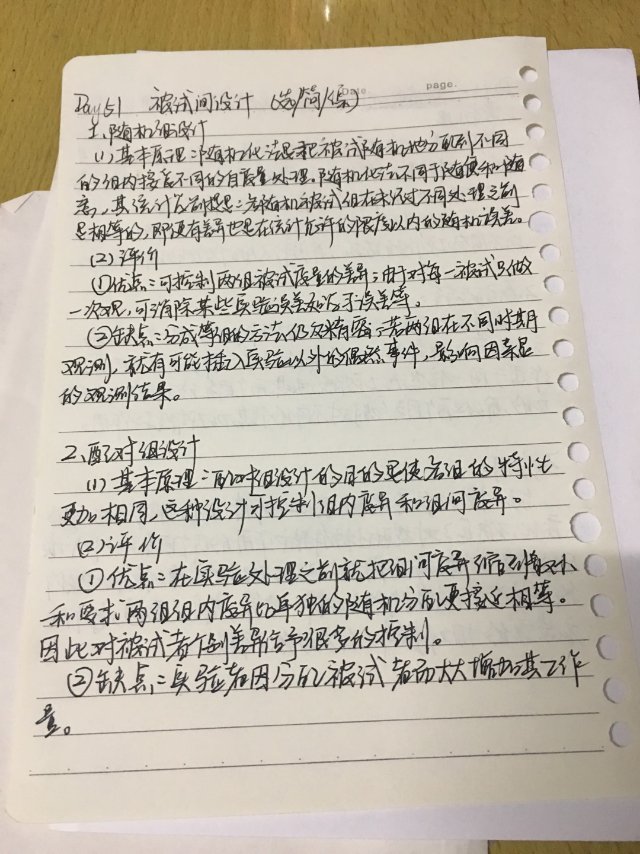 Date page.
Day 51 被试间设计 (选/简/综)
1、随机组设计
(1) 基本原理:随机化法是把被试随机地分配到不同
的组内接受不同的自变量处理,随机化法不同于随便和随
意,其统计前提是:各随机被试组在未经过不同处理之前
是相等的,即便有差异也是在统计允许的限度以内的随机误差。
(2)评价
①优点:可控制两组被试变量的差异;由于对每一被试只做
一次观,可消除某些实验误差如活于误差等。
②缺点:分成等组的方法仍欠精密;若两组在不同时期
观测,就有可能插入实验以外的偶然事件,影响因变量
的观测结果。
2、配对组设计
(1)基本原理:配对组设计的目的是使各组的特性
更加相同,这种设计可控制组内变异和组间变异。
(2)评价
①优点:在实验处理之前就把组间变异缩到最小,
和要求两组组内变异比单独的随机分配更接近相等。
因此对被试者个别差异给予很多的控制。
②缺点:实验者因分配被试者而大大增加其工作
量。